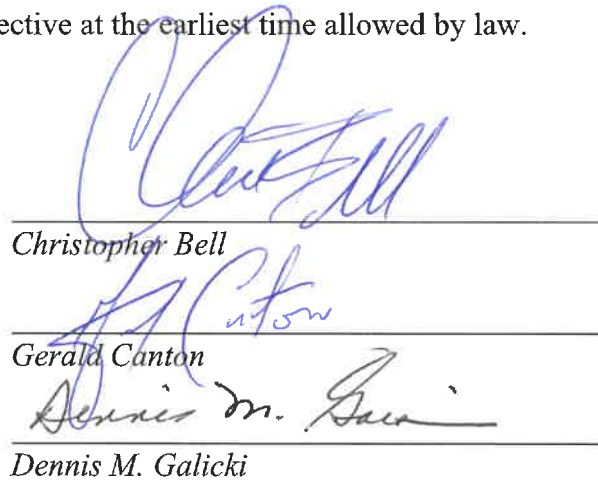 ective at the earliest time allowed by law.
Chris Bell
Christopher Bell
Canton
Gerald Canton
Dennis M.
Dennis M. Galicki